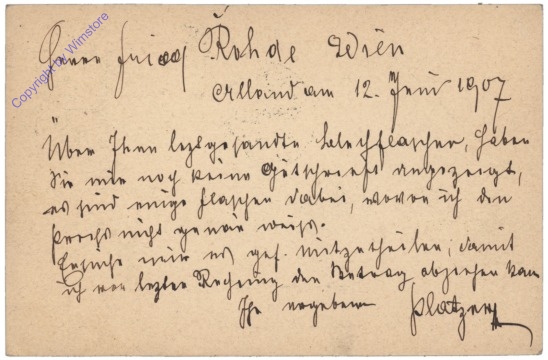 Herrn Fried Rohde Wien
Alland am 12. Juni 1907
Über Ihre letztgesandte Blechflaschen, haben
Sie mir noch keine Gutschrift angezeigt,
es sind einige flaschen dabei, wovon ich den
Preis nicht genau weiss.
Ersuche mir es gef. mitzutheilen, damit
ich von letzter Rechnung den Betrag abziehen kann
Ihr ergebener Platzer
Copyright by Wimstore